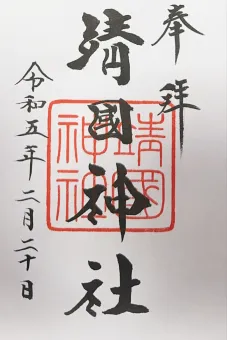 奉拝
靖國神社
靖國神社
令和五年二月二十日